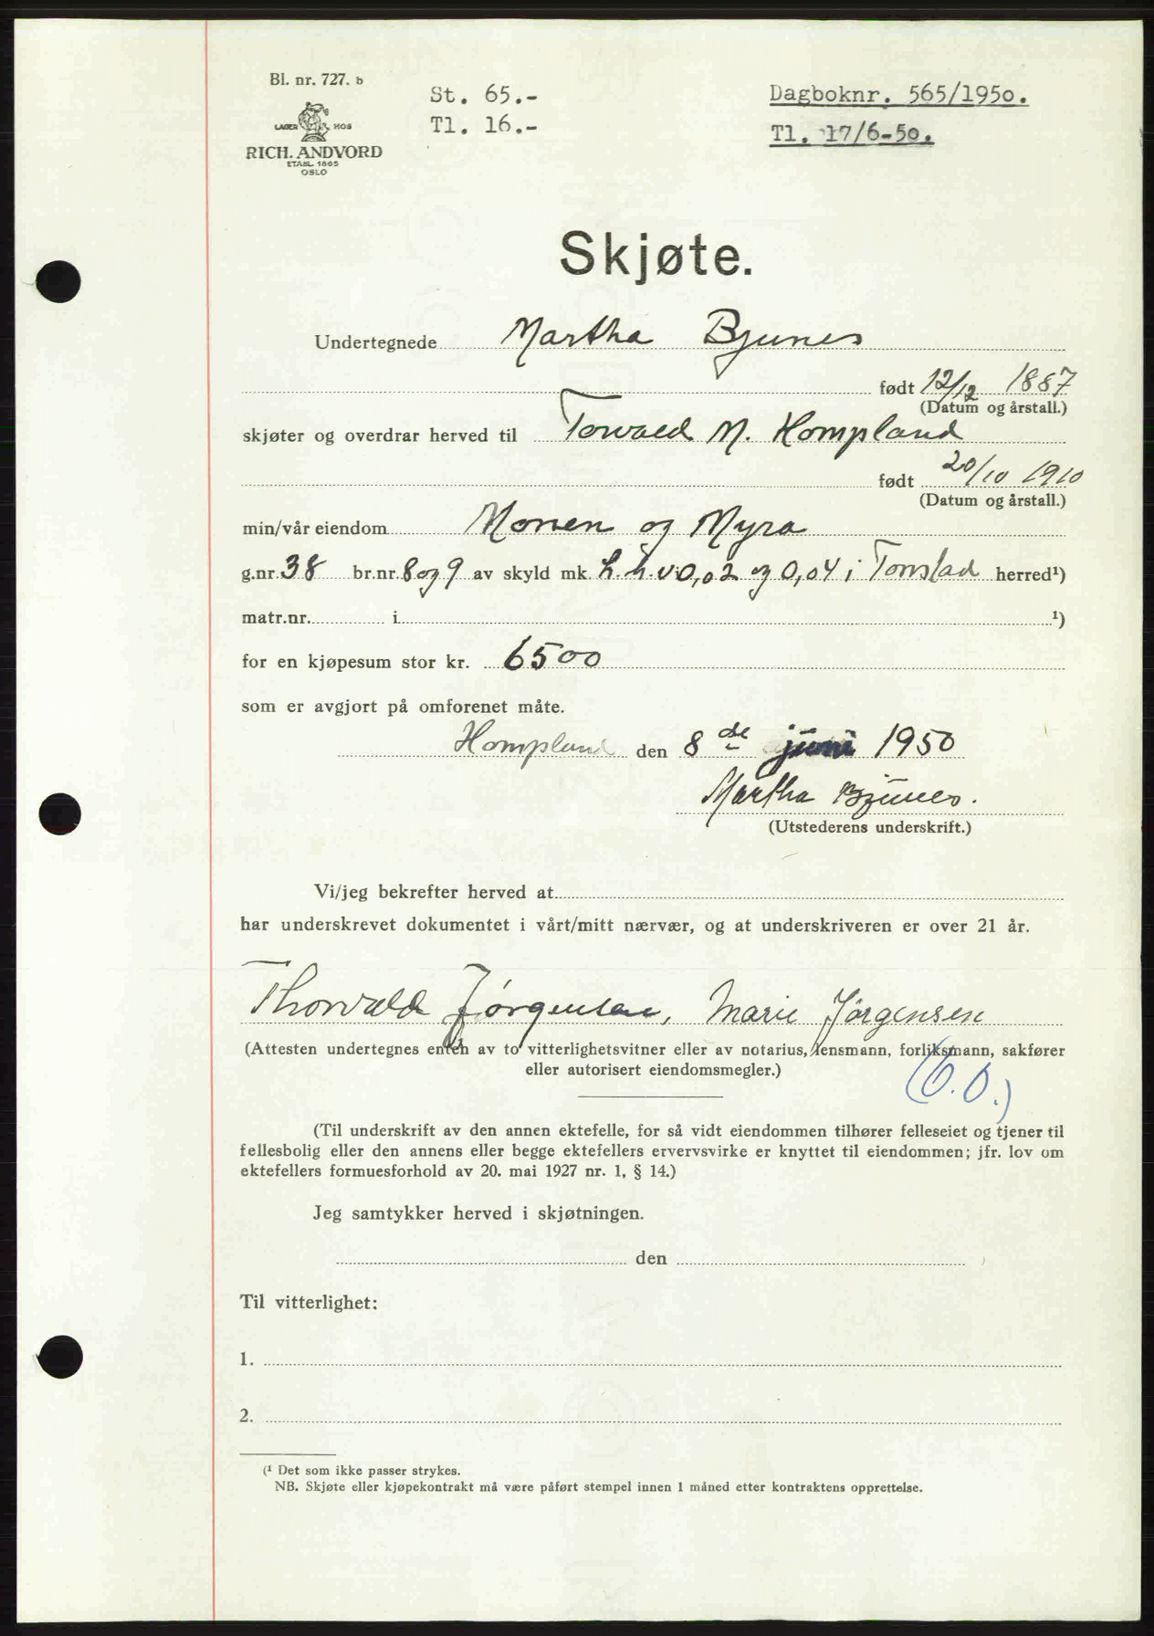 Bl. nr. 727. b
St. 65.-
Dagboknr. 565/1950.
Tl. 16.-
Tl. 17/6-50.
LAGER HOS
RICH. ANDVORD
ETABL. 1865
OSLO
Skjøte.
Undertegnede Martha Bjunes
født 12/12 1887
(Datum og årstall.)
skjøter og overdrar herved til Torvald M. Hompland
født 20/10 1910
(Datum og årstall.)
min/vår eiendom Monen og Myra
g.nr. 38 br.nr. 8 og 9 av skyld mk. h.h.v. 0,02 og 0,04 i Tonstad herred¹)
matr.nr. i ¹)
for en kjøpesum stor kr. 6500
som er avgjort på omforenet måte.
Hompland den 8de juni 1950
Martha Bjunes.
(Utstederens underskrift.)
Vi/jeg bekrefter herved at
har underskrevet dokumentet i vårt/mitt nærvær, og at underskriveren er over 21 år.
Thorvald Jørgensen, Marie Jørgensen
(Attesten undertegnes enten av to vitterlighetsvitner eller av notarius, lensmann, forliksmann, sakfører
eller autorisert eiendomsmegler.)
(O.O.)
(Til underskrift av den annen ektefelle, for så vidt eiendommen tilhører felleseiet og tjener til
fellesbolig eller den annens eller begge ektefellers ervervsvirke er knyttet til eiendommen; jfr. lov om
ektefellers formuesforhold av 20. mai 1927 nr. 1, § 14.)
Jeg samtykker herved i skjøtningen.
den
Til vitterlighet:
1.
2.
(¹ Det som ikke passer strykes.
NB. Skjøte eller kjøpekontrakt må være påført stempel innen 1 måned etter kontraktens opprettelse.